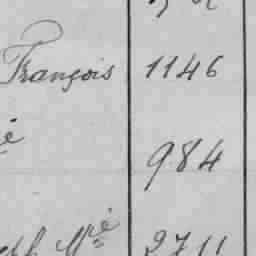 François 1146
984
Mie 2711